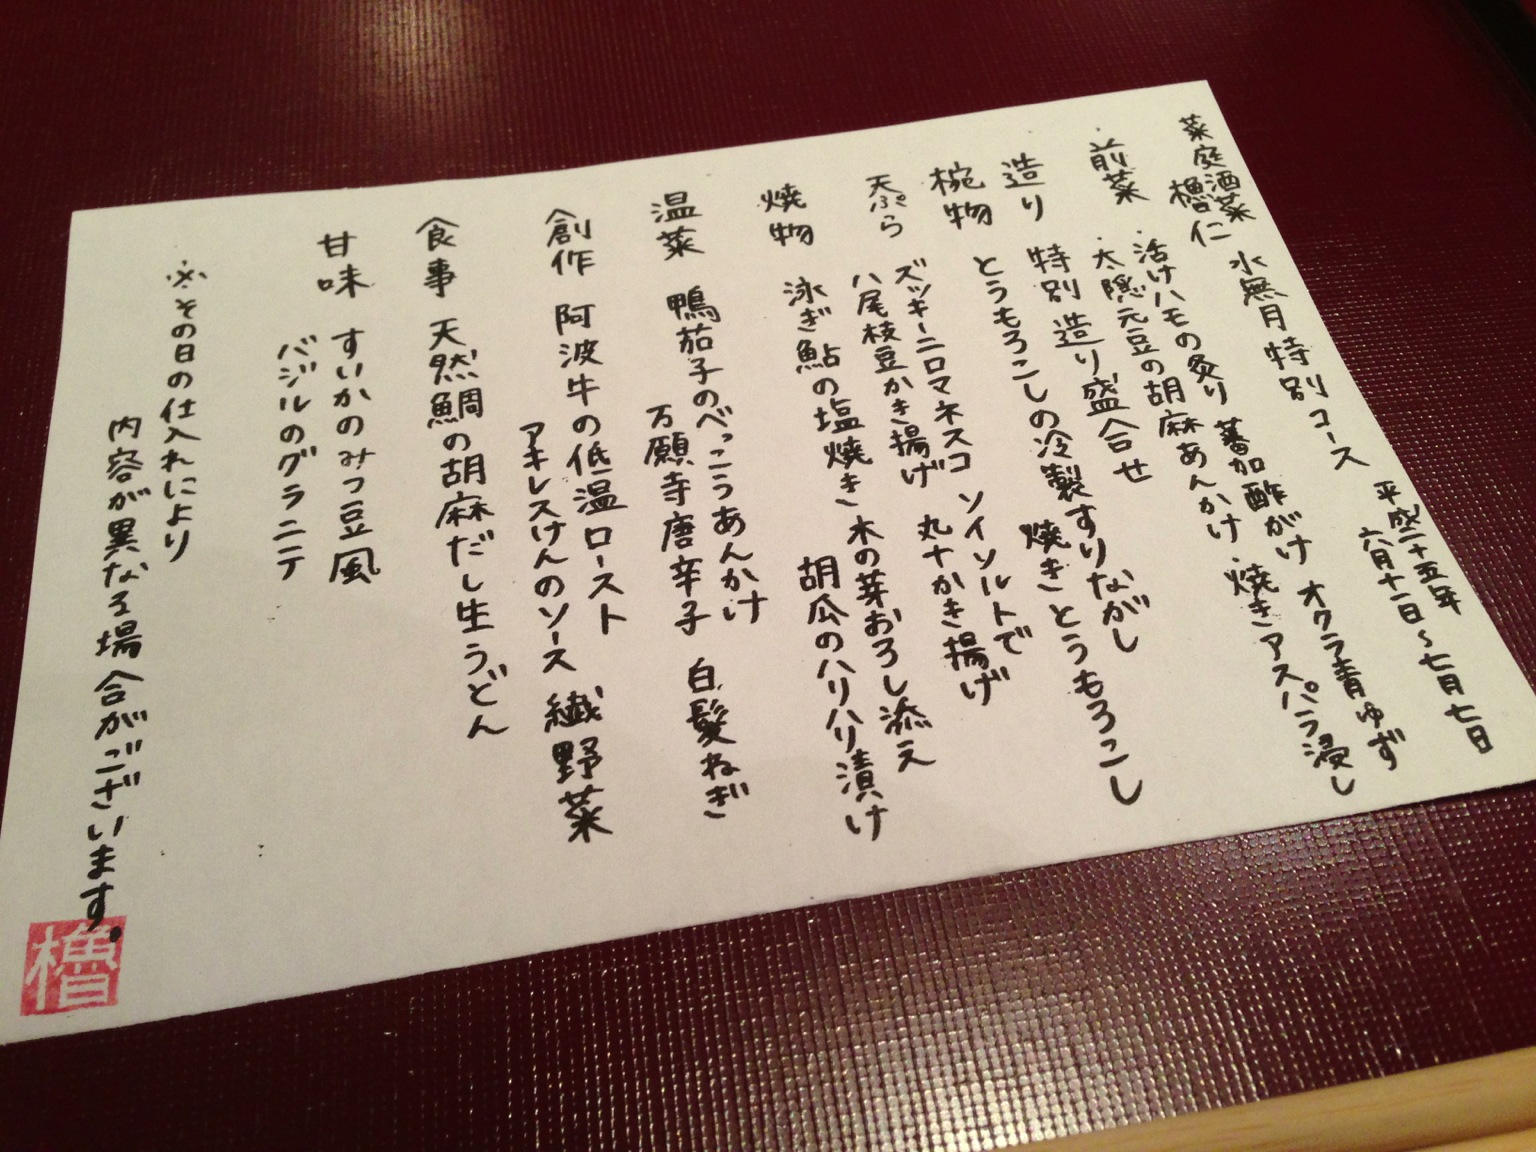 菜庭酒菜
櫓仁
水無月特別コース
平成二十五年
六月十一日〜七月七日
前菜
・活けハモの炙り 蕃加酢がけ オクラ青ゆず
・太隠元豆の胡麻あんかけ・焼きアスパラ浸し
造り 特別造り盛合せ
椀物 とうもろこしの冷製すりながし
焼きとうもろこし
天ぷら ズッキーニロマネスコ ソイソルトで
八尾枝豆かき揚げ 丸十かき揚げ
焼物 泳ぎ鮎の塩焼き 木の芽おろし添え
胡瓜のハリハリ漬け
温菜 鴨茄子のべっこうあんかけ
万願寺唐辛子 白髪ねぎ
創作 阿波牛の低温ロースト
アキレスけんのソース 繊野菜
食事 天然鯛の胡麻だし生うどん
甘味 すいかのみつ豆風
バジルのグラニテ
※その日の仕入れにより
内容が異なる場合がございます。
櫓